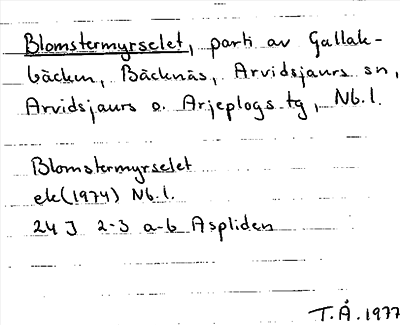 Blomstermyrselet, parti av Gallak-
bäcken, Bäcknäs, Arvidsjaurs sn,
Arvidsjaurs o. Arjeplogs tg, Nb. l.
Blomstermyrselet
ek (1974) Nb. l.
24 J 2-3 a-b Aspliden
T. Å. 1977